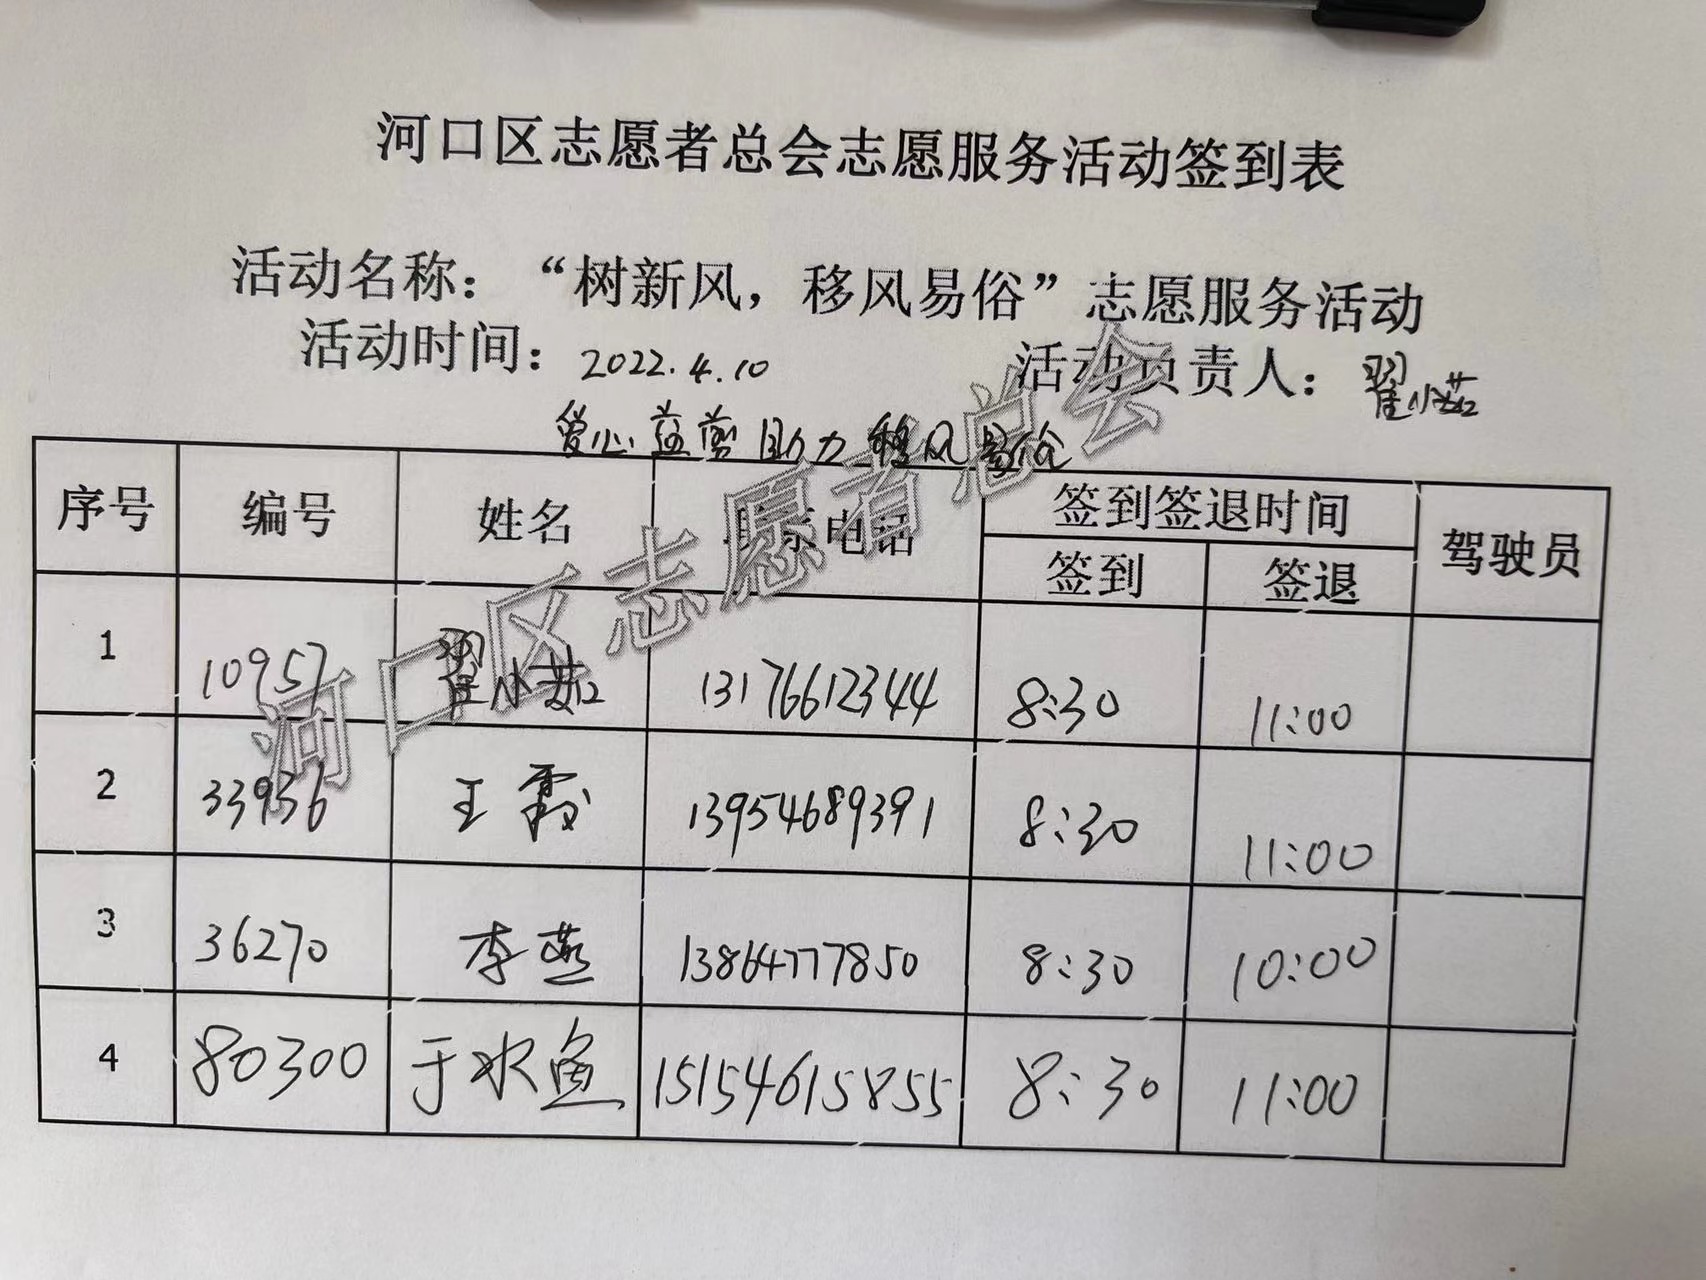 河口区志愿者总会志愿服务活动签到表
活动名称：“树新风，移风易俗”志愿服务活动
活动时间：2022.4.10 活动负责人：翟小茹
爱心益剪助力移风易俗
序号 编号 姓名 联系电话 签到签退时间 驾驶员
签到 签退
1 10957 翟小茹 13176612344 8:30 11:00
2 33936 王霞 13954689391 8:30 11:00
3 36270 李燕 13864777850 8:30 10:00
4 80300 于水鱼 15154615855 8:30 11:00
河口区志愿者总会